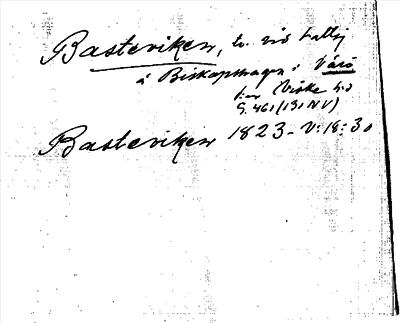 Basteviken, tv. vid Lattej
å Biskopshagen i Värö
s:n Viske hd
G. 461 (131 NV)
Basteviken 1823 - V: 18: 30